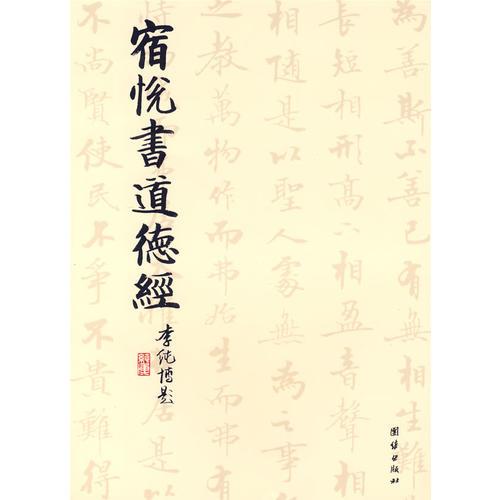 宿悅書道德經
李純博題
為善斯不善已有無相生難
長短相形高下相盈音聲
相隨是以聖人處無為之事
之教萬物作而弗始生而弗有
不尚賢使民不爭不貴難得
團結出版社